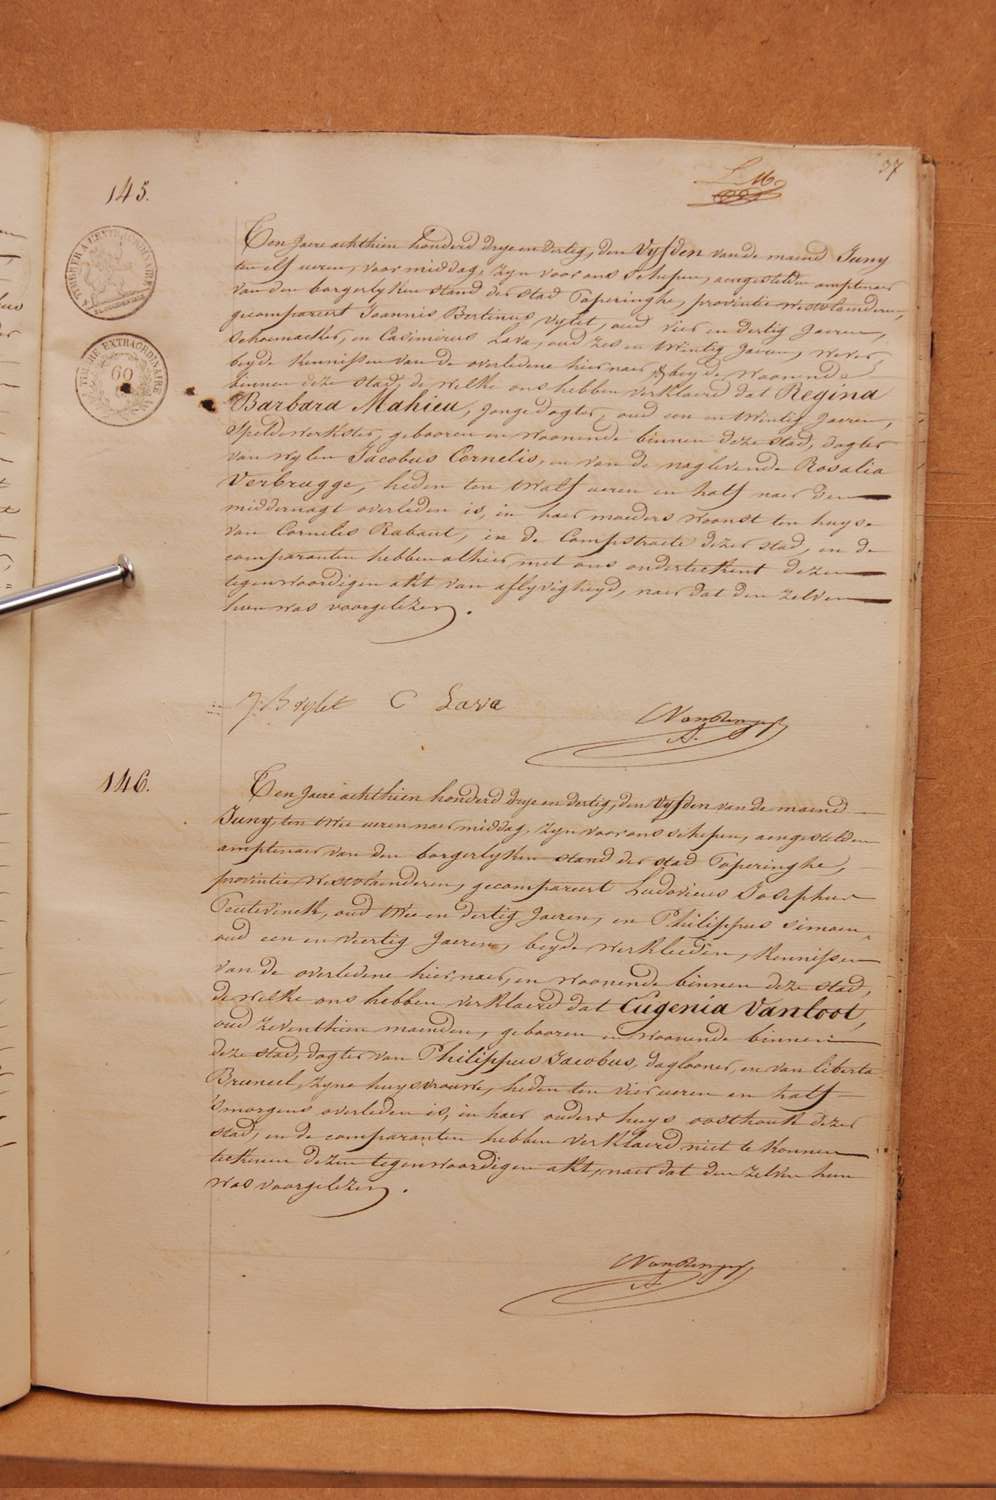 37
L M
145.
TIMBRE EXTRAORDINAIRE
60
Ten Jaere achthien honderd drye en dertig, den Vyfden van de maend Juny
ten elf ueren, voor middag, zyn voor ons Schepen, aengestelden amptenaer
van den borgerlyken stand der stad Poperinghe, provintie Westvlaenderen,
gecompareert Joannis Bertinus Vylet, oud vier en dertig Jaeren,
Schoemaeker, en Casimirus Lava, oud zes en twintig Jaeren, wever,
beyde kennissen van de overledene hier naer, & beyde woonende
binnen deze stad, de welke ons hebben verklaerd dat Regina
Barbara Mahieu, Jongedogter, oud een en twintig Jaeren,
Speldewerkster, gebooren en woonende binnen deze stad, dogter
van wylen Jacobus Cornelis, en van de naglevende Rosalia
Verbrugge, heden ten twalf ueren en half naer den
middernagt overleden is, in haer moeders woonst ten huyse
van Cornelis Rabaut, in de Compstraete dezer stad, en de
comparanten hebben alhier met ons onderteekent dezen
tegenwoordigen akt van aflyvigheyd, naer dat den zelven
hun was voorgelezen.
J: B vylet C Lava
146.
Ten Jaere achthien honderd drye en dertig, den Vyfden van de maend
Juny, ten twee ueren naer middag, zyn voor ons schepen, aengestelden
amptenaer van den borgerlyken stand der stad Poperinghe,
provintie Westvlaenderen, gecompareert Ludovicus Josephus
oud twee en dertig Jaeren, en Philippus Simoen,
oud een en veertig Jaeren, beyde werklieden, kennissen
van de overledene hier naer, en woonende binnen deze stad,
de welke ons hebben verklaerd dat Eugenia Vanloot,
oud zeventhien maenden, gebooren en woonende binnen
deze stad, dogter van Philippus Jacobus, daglooner, en van Liberta
Bruneel, zyne huysvrouwe, heden ten vier ueren en half
'smorgens overleden is, in haer ouders huys oosthouk dezer
stad, en de comparanten hebben verklaerd niet te konnen
teekenen dezen tegenwoordigen akt, naer dat den zelven hun
was voorgelezen.